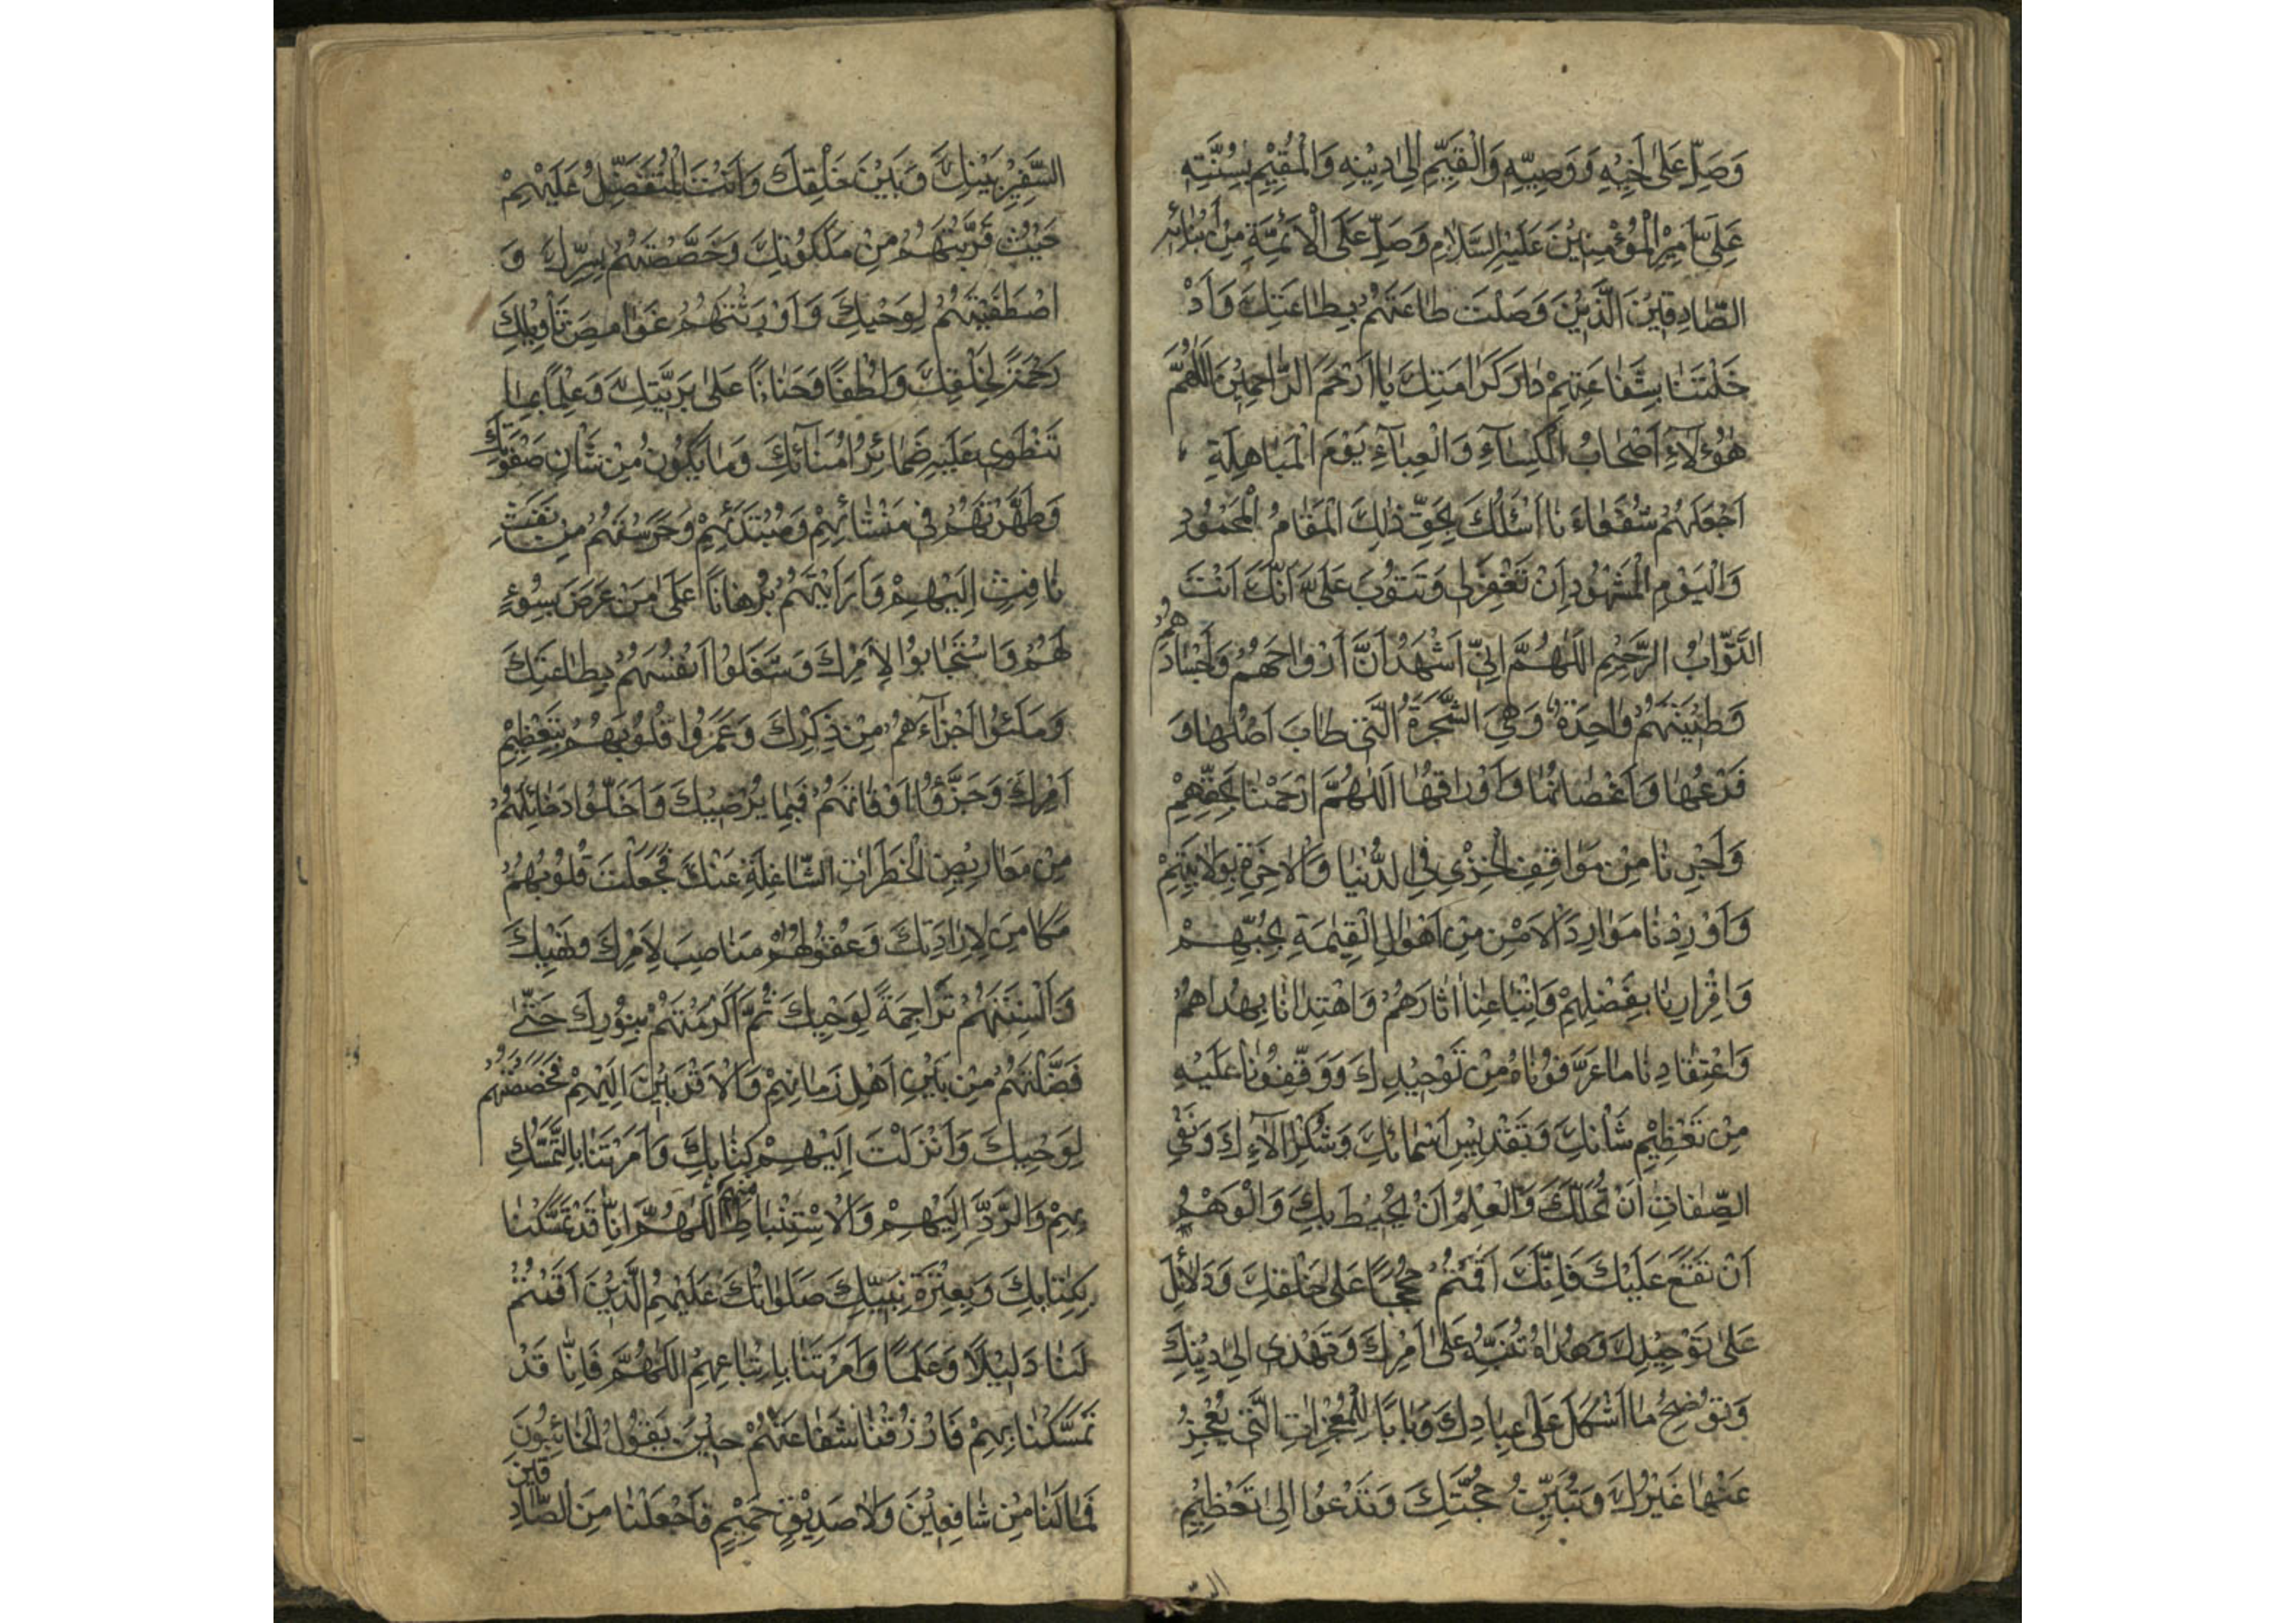 وَصَلِّ عَلٰى اَخِيْهِ وَوَصِيِّهِ وَالْقَيِّمِ اِلٰى دِيْنِهِ وَالْمُقِيْمِ بِسُنَّتِهِ
عَلِىٍّ اَمِيْرِ الْمُؤْمِنِيْنَ عَلَيْهِ السَّلَامُ وَصَلِّ عَلَى الْاَئِمَّةِ مِنْ اَبْنَائِهِ
الصَّادِقِيْنَ الَّذِيْنَ وَصَلْتَ طَاعَتَهُمْ بِطَاعَتِكَ وَاَدْ
خَلْتَنَا بِشَفَاعَتِهِمْ دَارَ كَرَامَتِكَ يَا اَرْحَمَ الرَّاحِمِيْنَ اَللّٰهُمَّ
هٰؤُلَاءِ اَصْحَابُ الْكِسَآءِ وَالْعِبَآءِ يَوْمَ الْمُبَاهِلَةِ
اجْعَلْهُمْ شُفَعَاءَنَا اَسْئَلُكَ بِحَقِّ ذٰلِكَ الْمَقَامُ الْمَحْمُوْدِ
وَالْيَوْمِ الْمَشْهُوْدِ اَنْ تَغْفِرَلِى وَتَتُوْبَ عَلَىَّ اَنَّكَ اَنْتَ
التَّوَّابُ الرَّحِيْمِ اَللّٰهُمَّ اِنِّى اَشْهَدُ اَنَّ اَرْوَاحَهُمْ وَاَجْسَادَهُمْ
وَطِيْنَتَهُمْ وَاحِدَةٌ وَهِىَ الشَّجَرَةُ الَّتِى طَابَ اَصْلُهَا وَ
فَرْعُهَا وَاَغْصَانُهَا وَاَوْرَاقُهَا اَللّٰهُمَّ ارْحَمْنَا بِحَقِّهِمْ
وَاَجِرْنَا مِنْ مَوَاقِفِ الْخِزْىِ فِى الدُّنْيَا وَالْاٰخِرَةِ بِوَلَايَتِهِمْ
وَاَوْرِدْنَا مَوَارِدَ الْاَمْنِ مِنْ اَهْوَالِ الْقِيٰمَةِ بِحُبِّهِمْ
وَاِقْرَارِنَا بِفَضْلِهِمْ وَاتِّبَاعِنَا اٰثَارَهُمْ وَاهْتِدَانَا بِهُدَاهُمْ
وَاعْتِقَادِنَا مَا عَرَّفُوْنَاهُ مِنْ تَوْحِيْدِكَ وَوَقَّفُوْنَا عَلَيْهِ
مِنْ تَعْظِيْمِ شَأْنِكَ وَتَقْدِيْسِ اَسْمَائِكَ وَشُكْرِ اٰلَاءِكَ وَنَفْىِ
الصِّفَاتِ اَنْ تَحُلَّكَ وَالْعِلْمُ اَنْ يُحِيْطَ بِكَ وَالْوَهْمُ
اَنْ تَقَعَ عَلَيْكَ فَاِنَّكَ اَقَمْتَهُمْ حُجَجًا عَلٰى خَلْقِكَ وَدَلَائِلَ
عَلٰى تَوْحِيْدِكَ وَهُدَاةً تُنَبِّهُ عَلٰى اَمْرِكَ وَتَهْدِى اِلٰى دِيْنِكَ
وَتُوْضِحُ مَا اَشْكَلَ عَلٰى عِبَادِكَ وَبَابًا لِلْمُعْجِزَاتِ الَّتِى يُعْجِزُ
عَنْهَا غَيْرُكَ وَتُبَيِّنُ حُجَّتَكَ وَتَدْعُوا اِلٰى تَعْظِيْمِ
السَّفِيْرِ بَيْنَكَ وَبَيْنَ خَلْقِكَ وَاَنْتَ الْمُتَفَضِّلُ عَلَيْهِمْ
حَيْثُ قَرَّبْتَهُمْ مِنْ مَلَكُوْتِكَ وَخَصَّصْتَهُمْ بِسِرِّكَ وَ
اصْطَفَيْتَهُمْ لِوَحْيِكَ وَاَوْرَثْتَهُمْ غَوَامِضَ تَأْوِيْلِكَ
رَحْمَةً لِخَلْقِكَ وَلُطْفًا وَحَنَانًا عَلٰى بَرِيَّتِكَ وَعِلْمًا بِمَا
تَنْطَوِى عَلَيْهِ ضَمَائِرُ اُمَنَآئِكَ وَمَا يَكُوْنُ مِنْ شَأْنِ صَفْوَتِكَ
وَطَهَّرْتَهُمْ فِى مَنْشَائِهِمْ وَمُبْتَدَئِهِمْ وَحَرَسْتَهُمْ مِنْ نَفْثِ
نَافِثٍ اِلَيْهِمْ وَاَرَايْتَهُمْ بُرْهَانًا عَلٰى مَنْ عَرَضَ بِسُوْءٍ
لَهُمْ وَاسْتَجَابُوْا لِاَمْرِكَ وَشَغَلُوْا اَنْفُسَهُمْ بِطَاعَتِكَ
وَمَلَئُوْا اَجْزَآءَهُمْ مِنْ ذِكْرِكَ وَعَمَرُوْا قُلُوْبَهُمْ بِتَعْظِيْمِ
اَمْرِكَ وَجَزَّؤُا اَوْقَاتَهُمْ فِيْمَا يُرْضِيْكَ وَاَخَلُّوْا دَخَائِلَهُمْ
مِنْ مَعَارِيْضِ الْخَطَرَاتِ الشَّاغِلَةِ عَنْكَ فَجَعَلْتَ قُلُوْبَهُمْ
مَكَامِنَ لِاِرَادَتِكَ وَعُقُوْلَهُمْ مَنَاصِبَ لِاَمْرِكَ وَنَهْيِكَ
وَاَلْسِنَتَهُمْ تَرَاجِمَةً لِوَحْيِكَ ثُمَّ اَكْرَمْتَهُمْ بِنُوْرِكَ حَتّٰى
فَضَّلْتَهُمْ مِنْ بَيْنِ اَهْلِ زَمَانِهِمْ وَالْاَقْرَبِيْنَ اِلَيْهِمْ فَخَصَصْتَهُمْ
لِوَحْيِكَ وَاَنْزَلْتَ اِلَيْهِمْ كِتَابِكَ وَاَمَرْتَنَا بِالتَّمَسُّكِ
بِهِمْ وَالرَّدِّ اِلَيْهِمْ وَالْاِسْتِنْبَاطِ مِنْهُمْ اَللّٰهُمَّ اِنَّا قَدْ تَمَسَّكْنَا
بِكِتَابِكَ وَبِعِتْرَةِ نَبِيِّكَ صَلَوَاتُكَ عَلَيْهِمُ الَّذِيْنَ اَقَمْتَهُمْ
لَنَا دَلِيْلًا وَعَلَمًا وَاَمَرْتَنَا بِاِتِّبَاعِهِمْ اَللّٰهُمَّ فَاِنَّا قَدْ
تَمَسَّكْنَا بِهِمْ فَارْزُقْنَا شَفَاعَتَهُمْ حِيْنَ يَقُوْلُ الْخَائِبُوْنَ
فَمَا لَنَا مِنْ شَافِعِيْنَ وَلَا صَدِيْقٍ حَمِيْمٍ فَاجْعَلْنَا مِنَ الصَّادِقِيْنَ